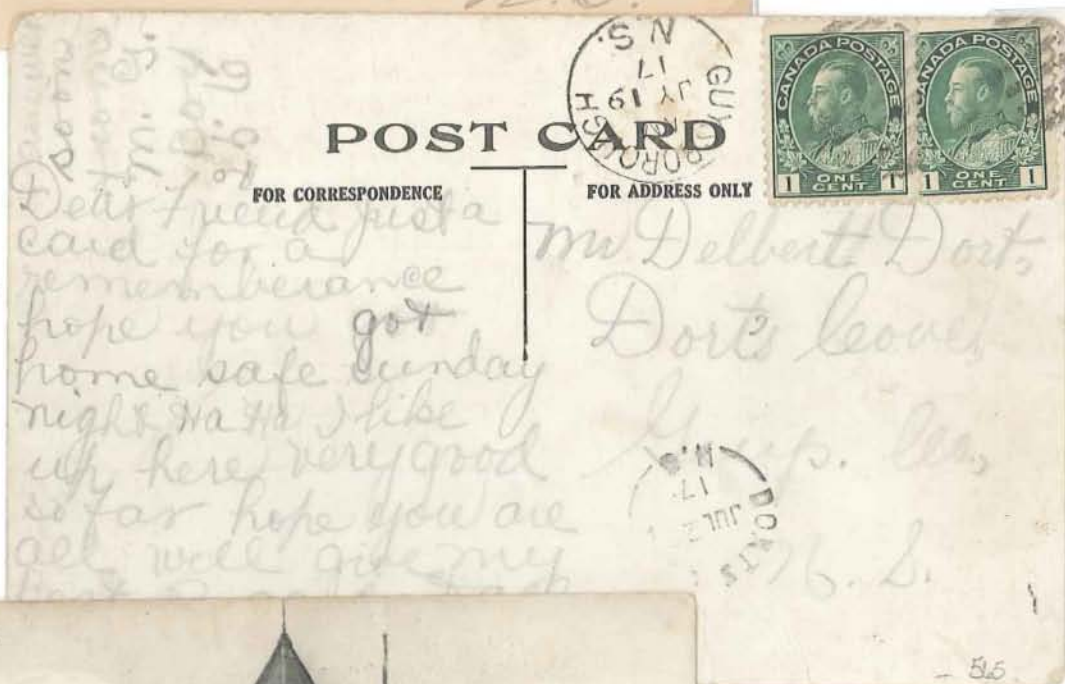 N.S.
POST CARD
FOR CORRESPONDENCE
FOR ADDRESS ONLY
CANADA POSTAGE
1 ONE CENT 1
CANADA POSTAGE
1 ONE CENT 1
GUYSBOROUGH
JY 19
17
N.S.
Dear Friend just a
card for a
rememberance
hope you got
home safe sunday
night Ha Ha I like
up here very good
so far hope you are
all well give my
soon
Mr Delbert Dort,
Dort's Cove,
Guys. Co,
N.S.
DORTS
JUL 2
17
N.S.
565